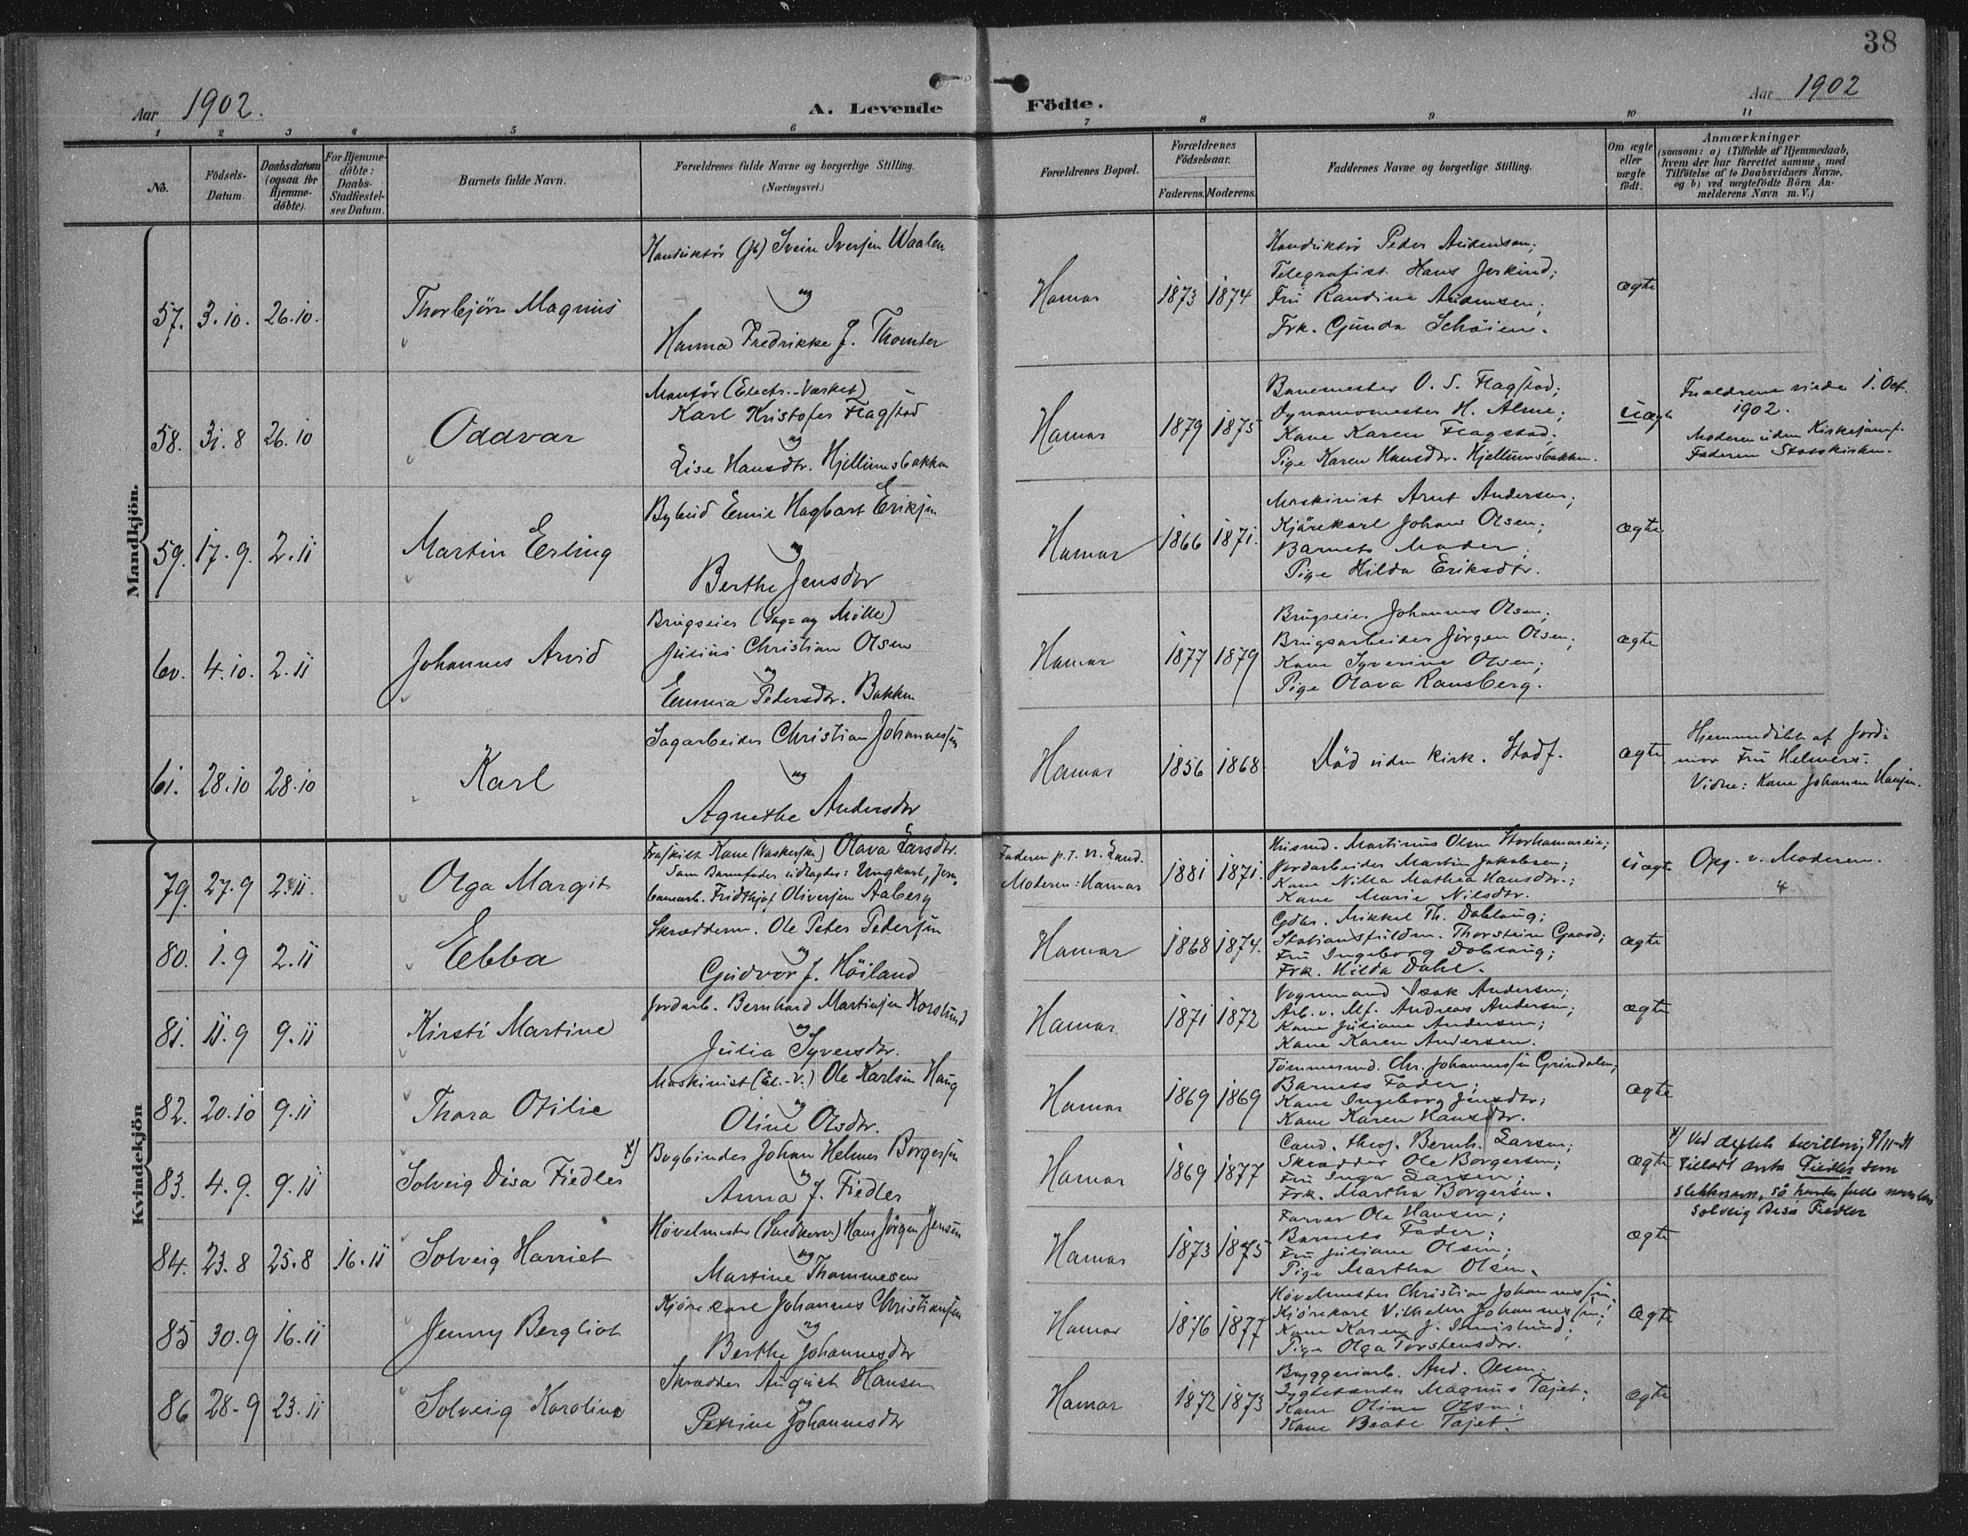 38
Aar 1902.
A. Levende Födte.
Aar 1902
1 2 3 4 5 6 7 8 9 10 11
No.
Födsels-Datum
Daabsdatum (ogsaa for Hjemme-döbte).
For Hjemme-döbte: Daabs-Stadfæstel-ses Datum.
Barnets fulde Navn.
Forældrenes fulde Navne og borgerlige Stilling.
(Næringsvei.)
Forældrenes Bopæl.
Forældrenes Födselsaar.
Faderens. Moderens.
Faddernes Navne og borgerlige Stilling.
Om ægte eller uægte födt.
Anmærkninger
(saasom: a) i Tilfælde af Hjemmedaab,
hvem der har forrettet samme, med
Tilföielse af to Daabsvidners Navne,
og b) ved uægtefödte Börn An-
melderens Navn m. V.)
Mandkjön.
57. 3.10. 26.10. Thorbjörn Magnus
Konduktör (jb) Svein Iversen Waalen
og
Hanna Fredrikke J. Thomter
Hamar 1873 1874
Konduktör Peder Andersen;
Telegrafist Hans Jerkind;
Fru Randine Andersen;
Frk. Gunda Schöien.
ægte
58. 31.8 26.10 Oddvar
Montör (Electr.-Værket)
Karl Kristofer Flagstad
og
Lise Hansdtr. Hjellumsbakken
Hamar 1879 1875
Banemester O. S. Flagstad;
Dynamomester H. Alme;
Kone Karen Flagstad;
Pige Karen Hansdtr. Hjellumsbakken.
uægte
Forældrene viede 1. Oct. 1902.
Moderen uden Kirkesamf.
Faderen Statskirken.
59. 17.9. 2.11 Martin Erling
Bybud Emil Hagbart Eriksen
og
Berthe Jensdtr
Hamar 1866 1871.
Maskinist Arnt Andersen;
Kjörekarl Johans Olsen;
Barnets Moder;
Pige Hilda Eriksdtr.
ægte
60. 4.10. 2.11 Johannes Arvid
Brugseier (Sag- og Mölle)
Julius Christian Olsen
og
Emma Pedersdtr. Bakken
Hamar 1877 1879
Brugseier Johannes Olsen;
Brugsarbeider Jörgen Olsen;
Kone Syverine Olsen;
Pige Olava Ransberg.
ægte
61. 28.10 28.10 Karl
Sagarbeider Christian Johannessen
og
Agnethe Andersdtr
Hamar 1856 1868
Död uden kirk. Stadf.
ægte
Hjemmedöbt af Jord-
mor Fru Helmers.
Vidne: Kone Johanne Hansen.
Kvindekjön
79. 27.9 2.11. Olga Margit
Fraskilt Kone (Vaskerske) Olava Larsdtr.
Som Barnefader udlagtes: Ungkarl, Jern-
banearb. Fridthjof Oliversen Aaberg
Faderen p.t. N. Land.
Moderen: Hamar
1881 1871.
Husmd. Martinus Olsen Storhamareie;
Jordarbeider Martin Jakobsen;
Kone Nilla Mathea Hansdtr.;
Kone Marie Nilsdtr.
uægte Opg. v. Moderen.
80. 1.9 2.11 Ebba
Skrædderm. Ole Peter Pedersen
og
Gudvor J. Höiland
Hamar 1868 1874.
Gdbr. Mikkel Th. Doblaug;
Stationsfuldm. Thorstein Gaard;
Fru Ingeborg Doblaug;
Frk. Hilda Dahl.
ægte
81. 11.9 9.11 Kirsti Martine
Jordarb. Bernhard Martinsen Korslund
og
Julia Syversdtr.
Hamar. 1871 1872
Vognmand Isak Andersen;
Arb. v. Mf. Andreas Andersen;
Kone Juliane Andersen;
Kone Karen Andersen.
ægte
82. 20.10 9.11 Thora Otilie
Maskinist (El.-V.) Ole Karlsen Haug
og
Oline Olsdtr.
Hamar 1869 1869
Tömmermd. Chr. Johannessen Gründalen;
Barnets Fader;
Kone Ingeborg Jensdtr;
Kone Karen Hansdtr.
ægte
83. 4.9. 9.11 Solveig Disa Fiedler x)
Bogbinder Johan Helmer Borgersen
og
Anna J. Fiedler
Hamar 1869 1877
Cand. theol. Bernh. Larsen;
Skrædder Ole Borgersen;
Fru Inga Larsen;
Frk. Martha Borgersen.
ægte
Fiedler som
slektsnavn, så
Solveig Disa Fiedler
84. 23.8 25.8 16.11 Solveig Harriet
Hövelmester Hans Jörgen Jensen
og
Martine Thommesen
Hamar 1873 1875
Farver Ole Hansen;
Barnets Fader;
Fru Juliane Olsen;
Pige Martha Olsen.
ægte
85 30.9 16.11 Jenny Bergliot
Kjörekarl Johannes Christiansen
og
Berthe Johannesdtr
Hamar 1876 1877
Hövelmester Christian Johannessen;
Kjörekarl Vilhelm Johannessen;
Kone Karen J.
Pige Olga Torstensdtr.
ægte
86 28.9 23.11 Solveig Karoline
Skrædder August Hansen
og
Petrine Johannesdtr
Hamar 1872 1873
Bryggeriarb. And. Olsen;
Magnus Tajet;
Kone Oline Olsen;
Kone Beate Tajet.
ægte